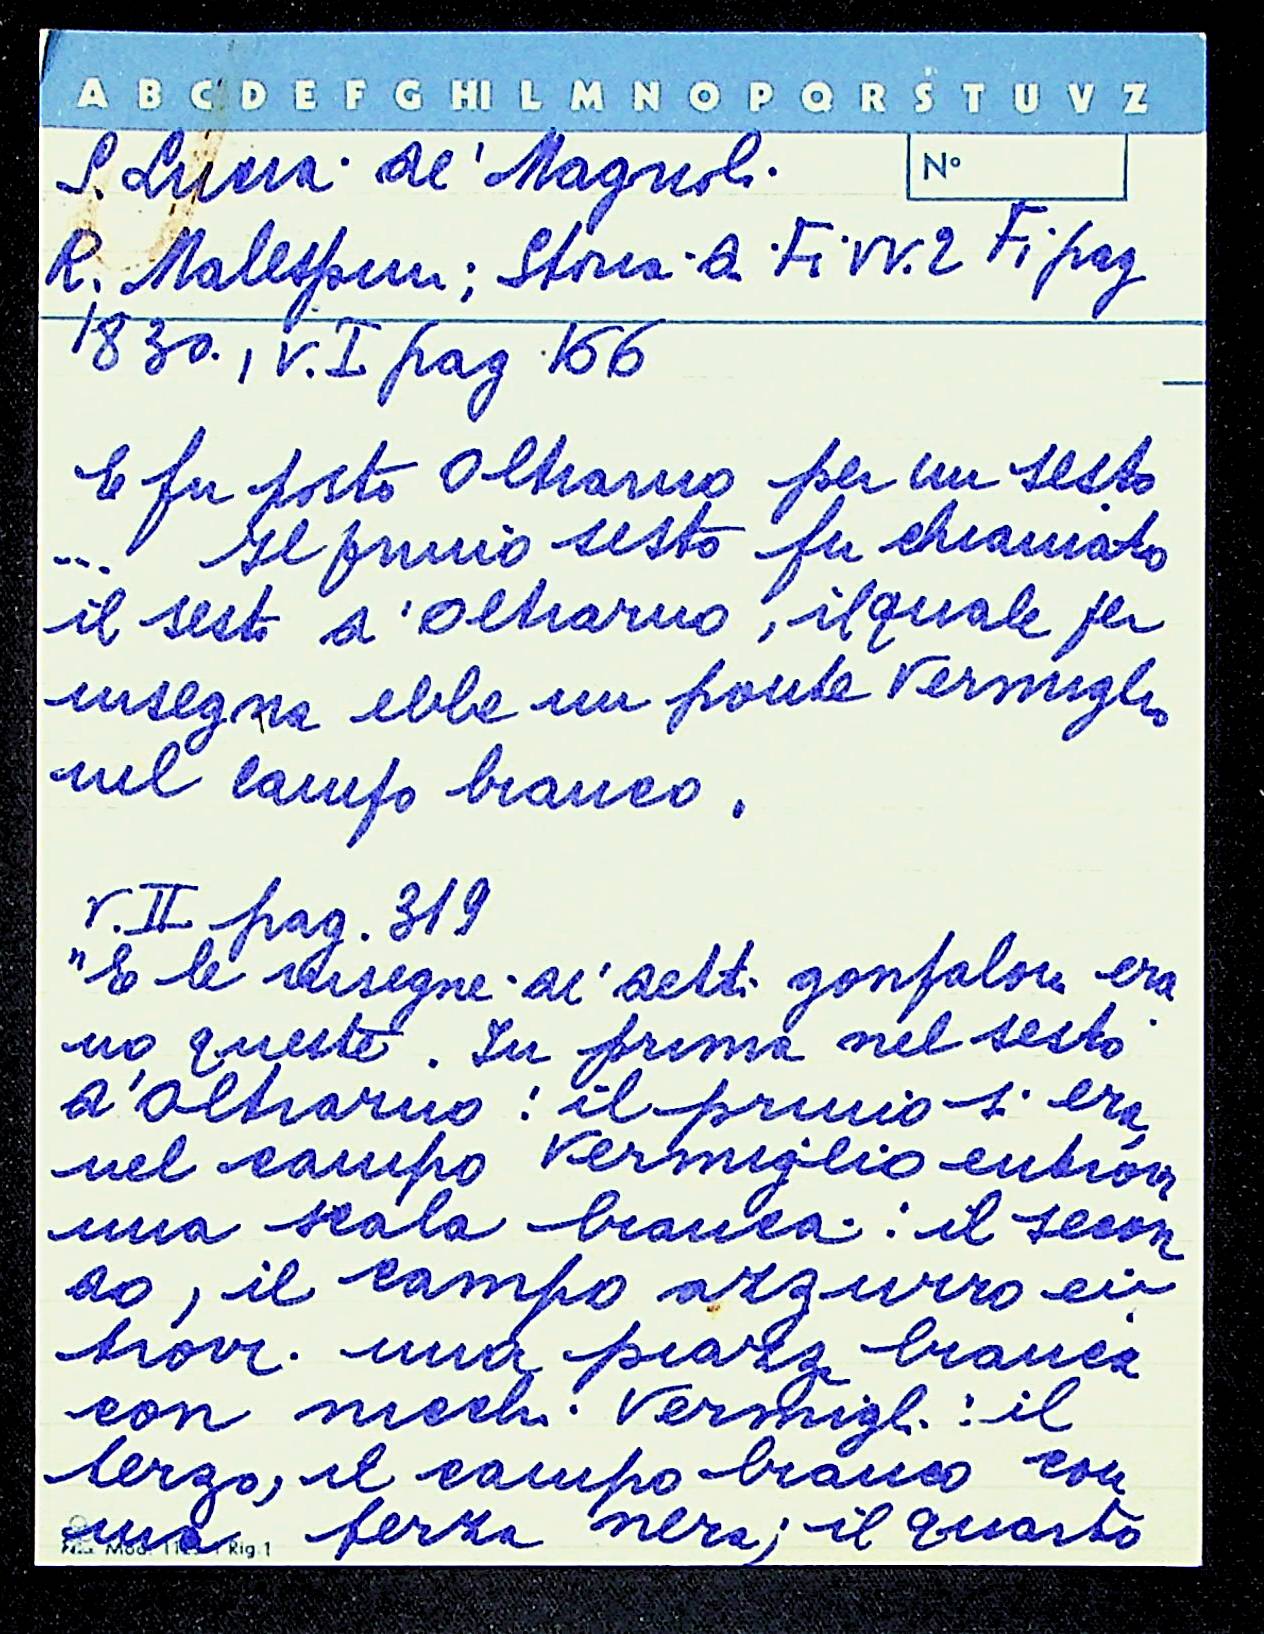 A B C D E F G HI L M N O P Q R S T U V Z
S. Lucia de' Magnoli
Nº
R. Malespini; Storia di Fi vv. 2 Fi pag
1830., v. I pag 166
E fu posto Oltrarno per un sesto
... Il primo sesto fu chiamato
il sesto d'Oltrarno, il quale per
insegna ebbe un ponte Vermiglio
nel campo bianco.
v. II pag. 319
"E le insegne de' detti gonfaloni era
no queste. In prima nel sesto
d'Oltrarno: il primo si era
nel campo Vermiglio entrovi
una scala bianca: il secon
do, il campo azzurro en
trovi una piazza bianca
con nicchi Vermigli: il
terzo, il campo bianco con
una ferza nera; il quarto
Mod. Rig. 1